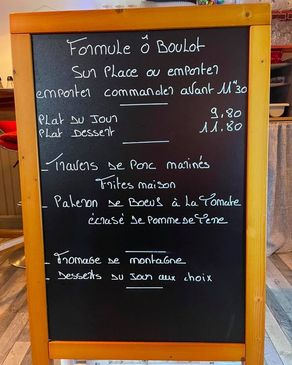 Formule ô Boulot
Sur Place ou emporter
emporter commander avant 11H30
Plat du Jour 9,80
Plat Dessert 11,80
- Travers de Porc marinés
Frites maison
- Paleron de Boeuf à La Tomate
écrasé de Pomme de Terre
- Fromage de montagne
- Desserts du Jour aux choix